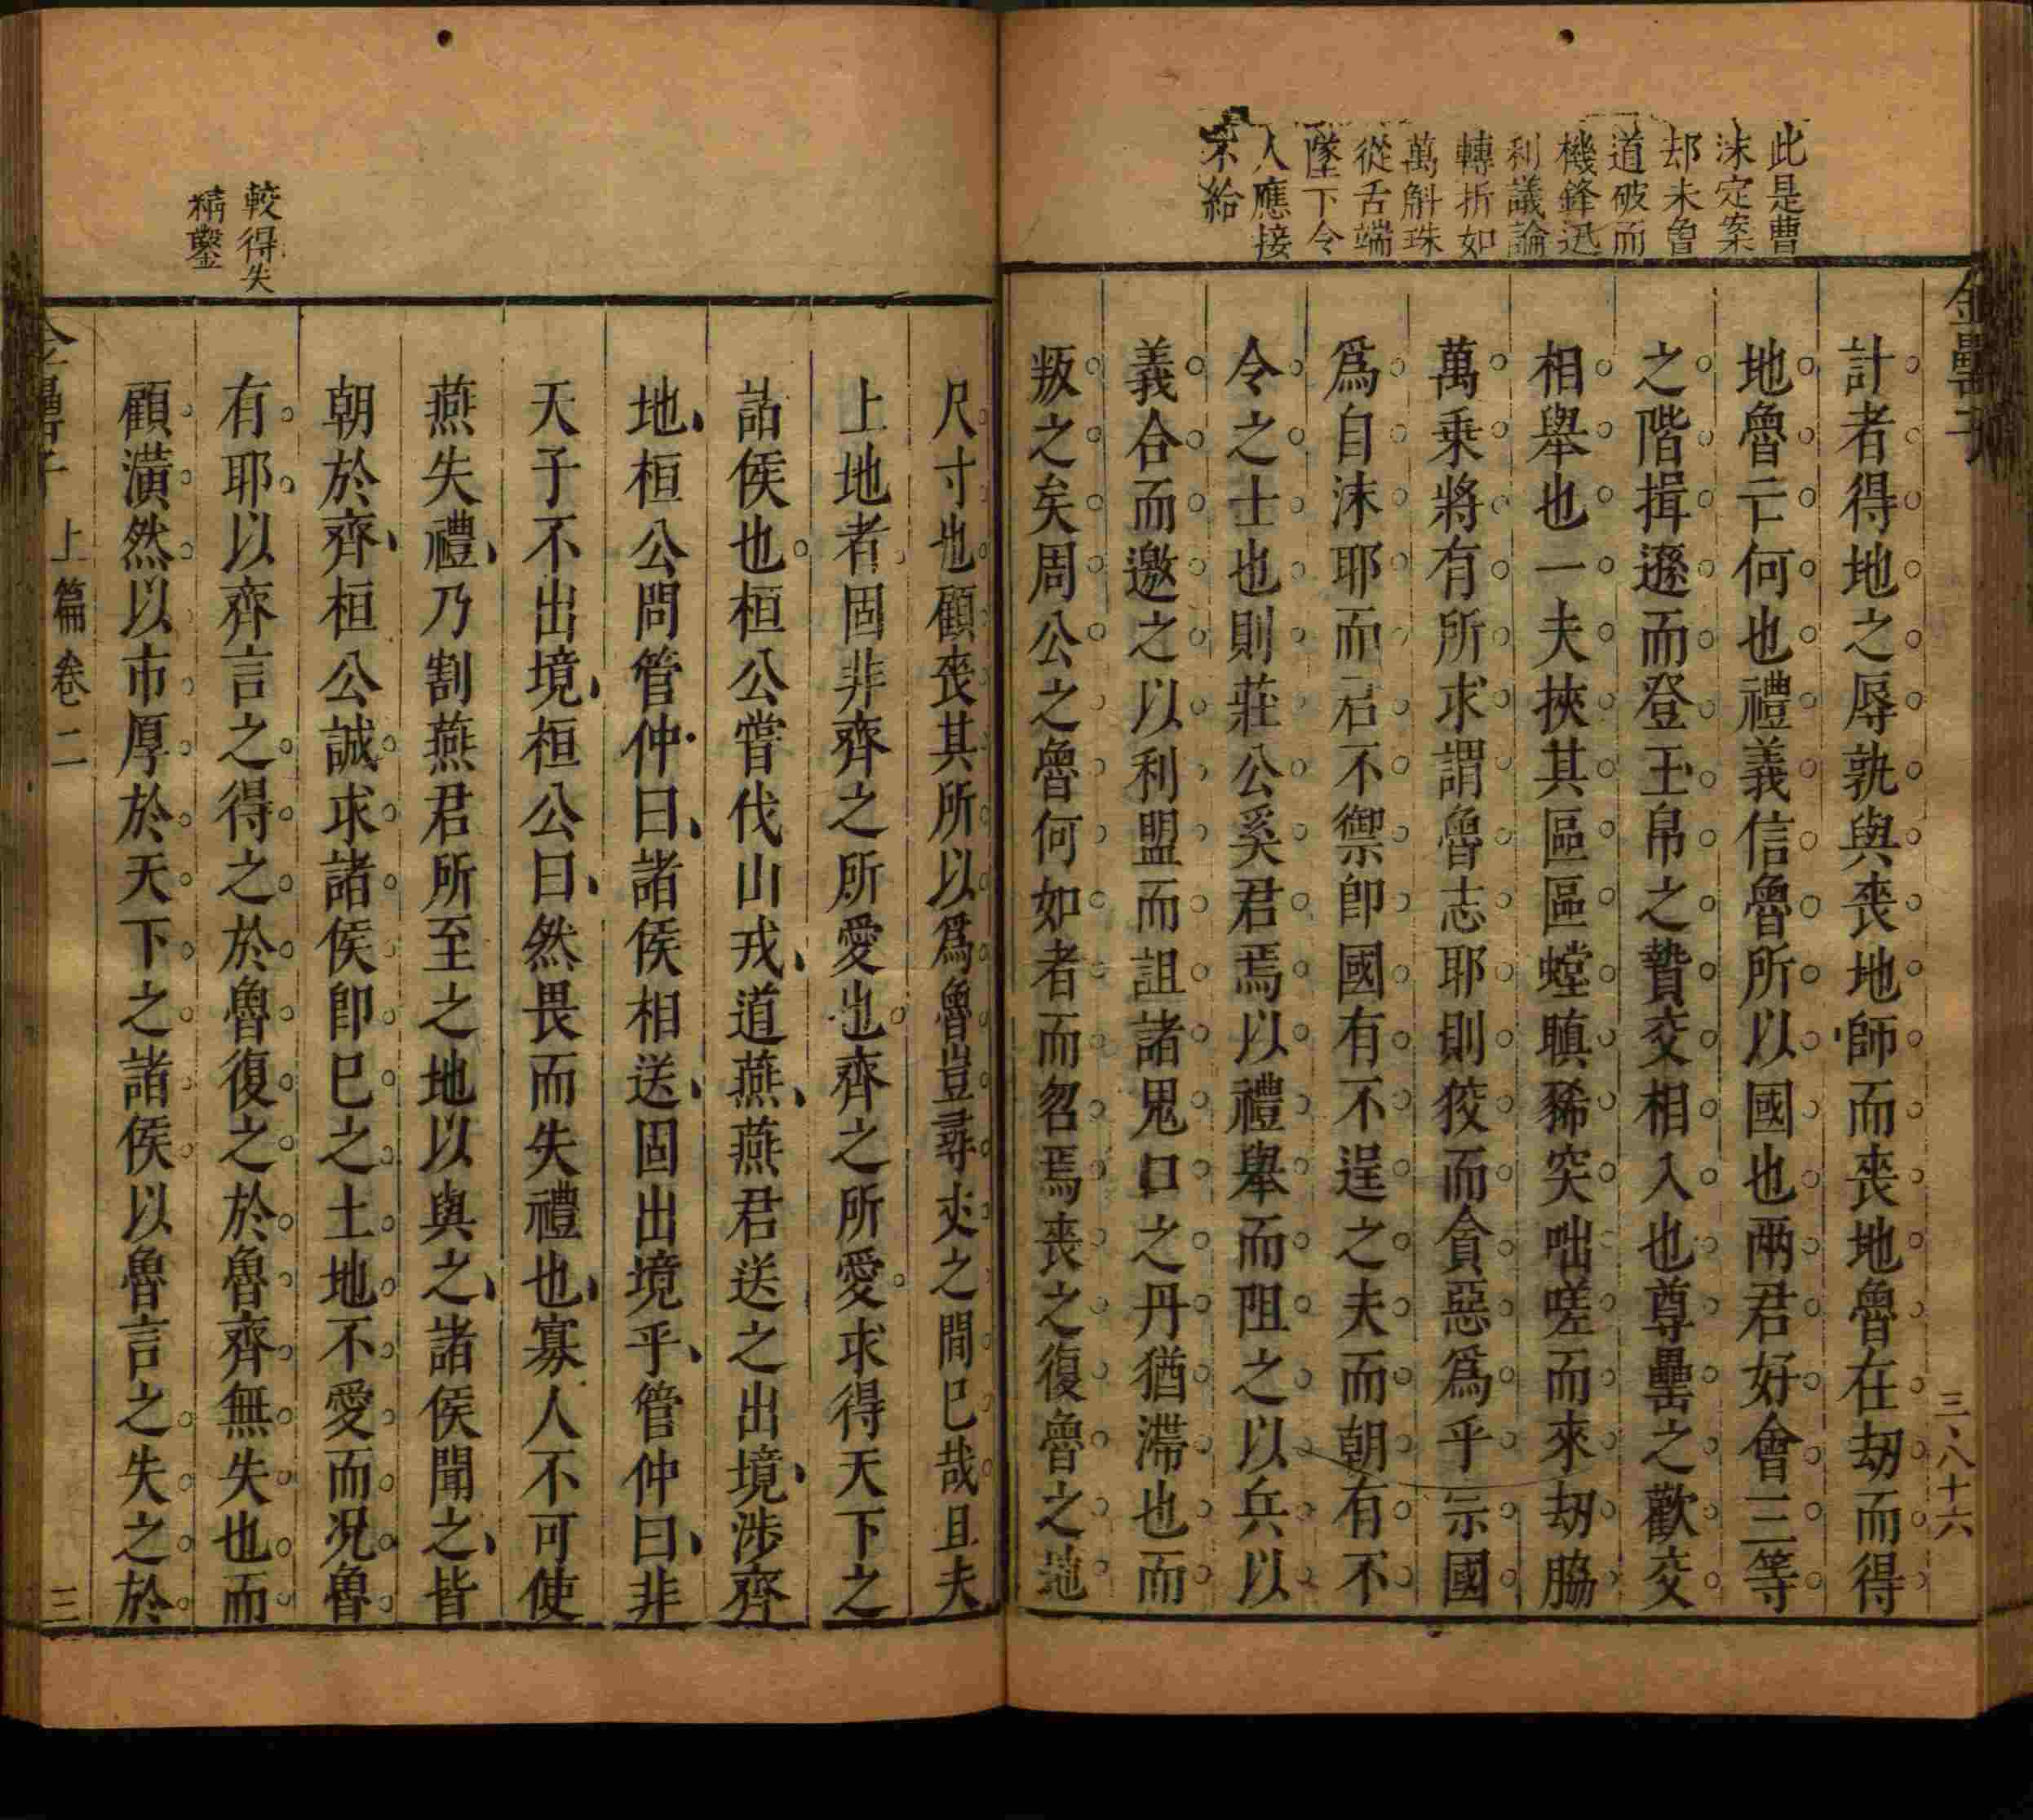 此是曹
沫定案
却未魯
道破而
機鋒迅
利議論
轉折如
萬斛珠
從舌端
墜下令
人應接
不給
金罍子
三八十六
計者得地之辱孰與喪地師而喪地魯在刼而得
地魯亡何也禮義信魯所以國也兩君好會三等
之階揖遜而登玉帛之贄交相入也尊罍之歡交
相舉也一夫挾其區區螳瞋豨突咄嗟而來刼脇
萬乗將有所求謂魯志耶則狡而貪惡爲乎宗國
爲自沫耶而君不禦卽國有不逞之夫而朝有不
令之士也則莊公奚君焉以禮舉而阻之以兵以
義合而邀之以利盟而詛諸鬼口之丹猶滯也而
叛之矣周公之魯何如者而忽焉喪之復魯之地
較得失
精鑿
尺寸也顧喪其所以爲魯豈尋丈之間巳哉且夫
上地者固非齊之所愛也齊之所愛求得天下之
諸侯也桓公嘗伐山戎道燕燕君送之出境涉齊
地桓公問管仲曰諸侯相送固出境乎管仲曰非
天子不出境桓公曰然畏而失禮也寡人不可使
燕失禮乃割燕君所至之地以與之諸侯聞之皆
朝於齊桓公誠求諸侯卽巳之土地不愛而况魯
有耶以齊言之得之於魯復之於魯齊無失也而
顧潢然以市厚於天下之諸侯以魯言之失之於
金罍子
上篇卷二
三